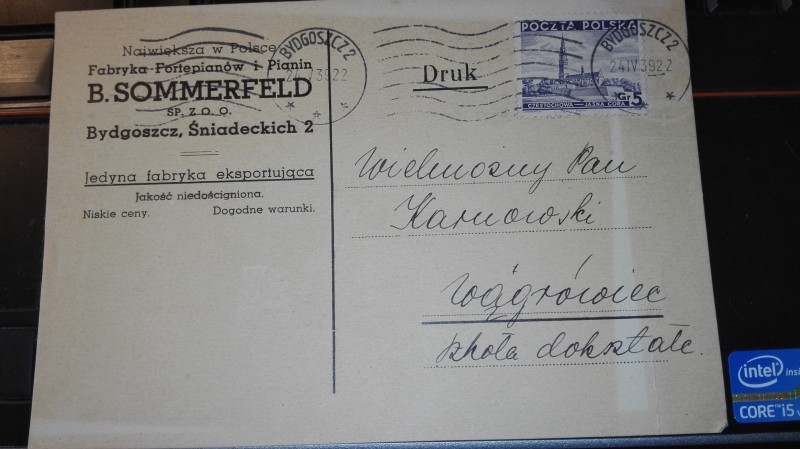 Największa w Polsce
Fabryka Fortepianów i Pianin
B. SOMMERFELD
SP. Z O. O.
Bydgoszcz, Śniadeckich 2
Jedyna fabryka eksportująca
Jakość niedościgniona.
Niskie ceny. Dogodne warunki.
BYDGOSZCZ 2
24.IV.39.22
Druk
POCZTA POLSKA
CZĘSTOCHOWA — JASNA GÓRA
Gr 5
BYDGOSZCZ 2
24.IV.39.22
Wielmożny Pan
Karnowski
Wągrówiec
szkoła dokształc.
intel
CORE i5